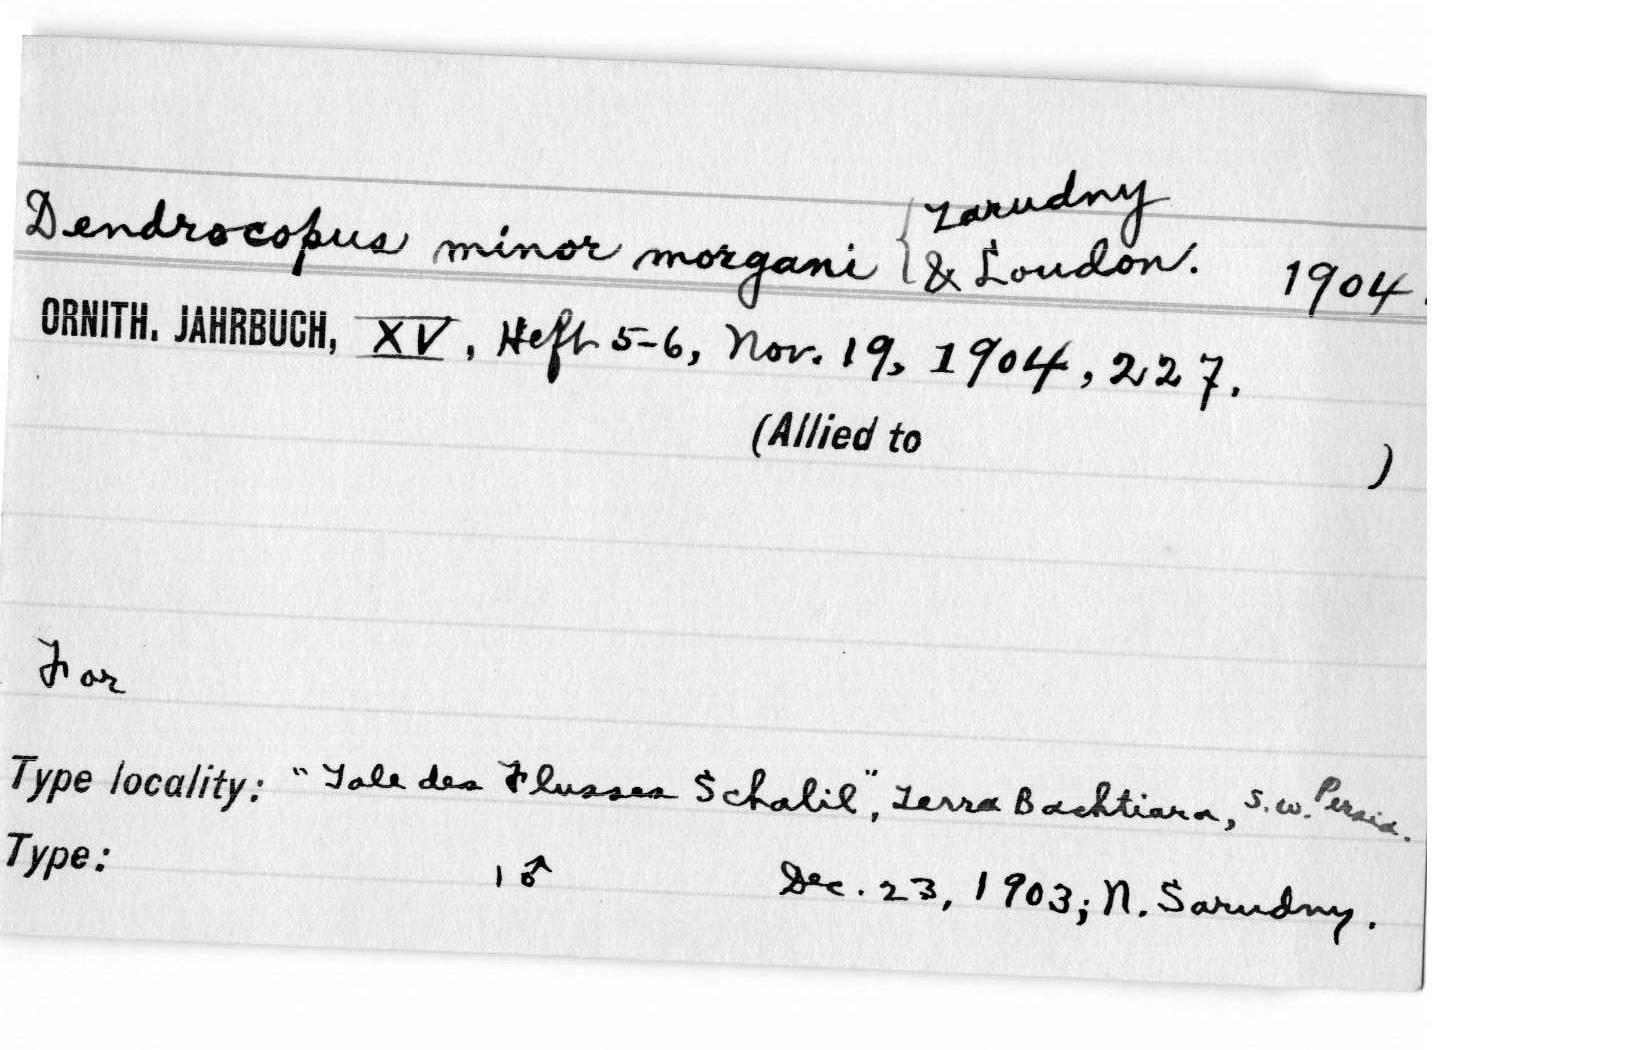 Dendrocopus minor morgani { Zarudny
& Loudon. 1904.
ORNITH. JAHRBUCH, XV, Heft 5-6, Nov. 19, 1904, 227.
(Allied to )
For
Type locality: "Tale des Flusses Schalil", Terra Bachtiara, S.W. Persia.
Type: 1♂ Dec. 23, 1903; N. Sarudny.